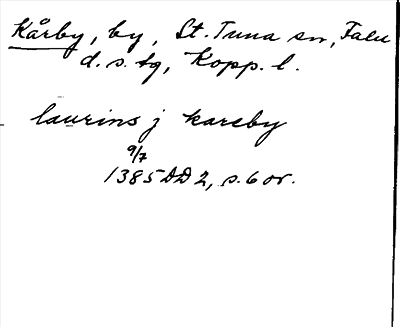 Kårby, by, St. Tuna sn, Falu
d. s. tg, Kopp. l.
laurins j karsby
9/7
1385 DD 2, s. 6 or.